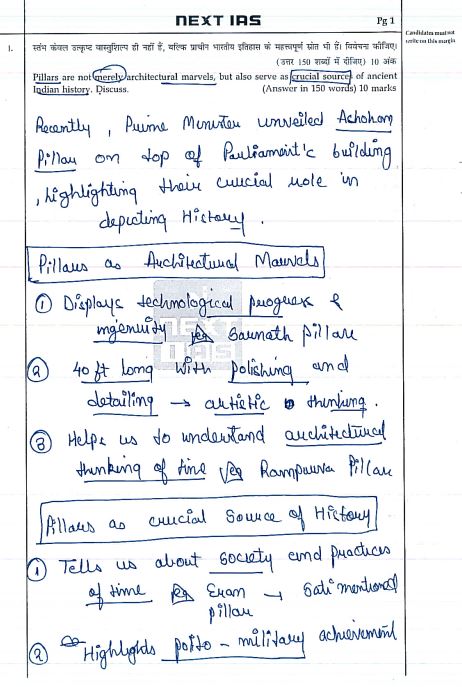 NEXT IAS
Pg 1
Candidates must not
write on this margin
1. स्तंभ केवल उत्कृष्ट वास्तुशिल्प ही नहीं हैं, बल्कि प्राचीन भारतीय इतिहास के महत्वपूर्ण स्रोत भी हैं। विवेचना कीजिए।
(उत्तर 150 शब्दों में दीजिए) 10 अंक
Pillars are not merely architectural marvels, but also serve as crucial source of ancient
Indian history. Discuss.
(Answer in 150 words) 10 marks
Recently, Prime Minister unveiled Ashokan
Pillar on top of Parliament's building
, highlighting their crucial role in
depicting History.
Pillars as Architectural Marvels
① Displays technological progress &
ingenuity eg Sarnath pillar
② 40 ft long with polishing and
detailing → artistic thinking.
③ Helps us to understand architectural
thinking of time eg Rampurva Pillar
Pillars as crucial Source of History
① Tells us about society and practices
of time eg Eran → Sati mentioned
pillar
② Highlights polito - military achievement
NEXT
IAS